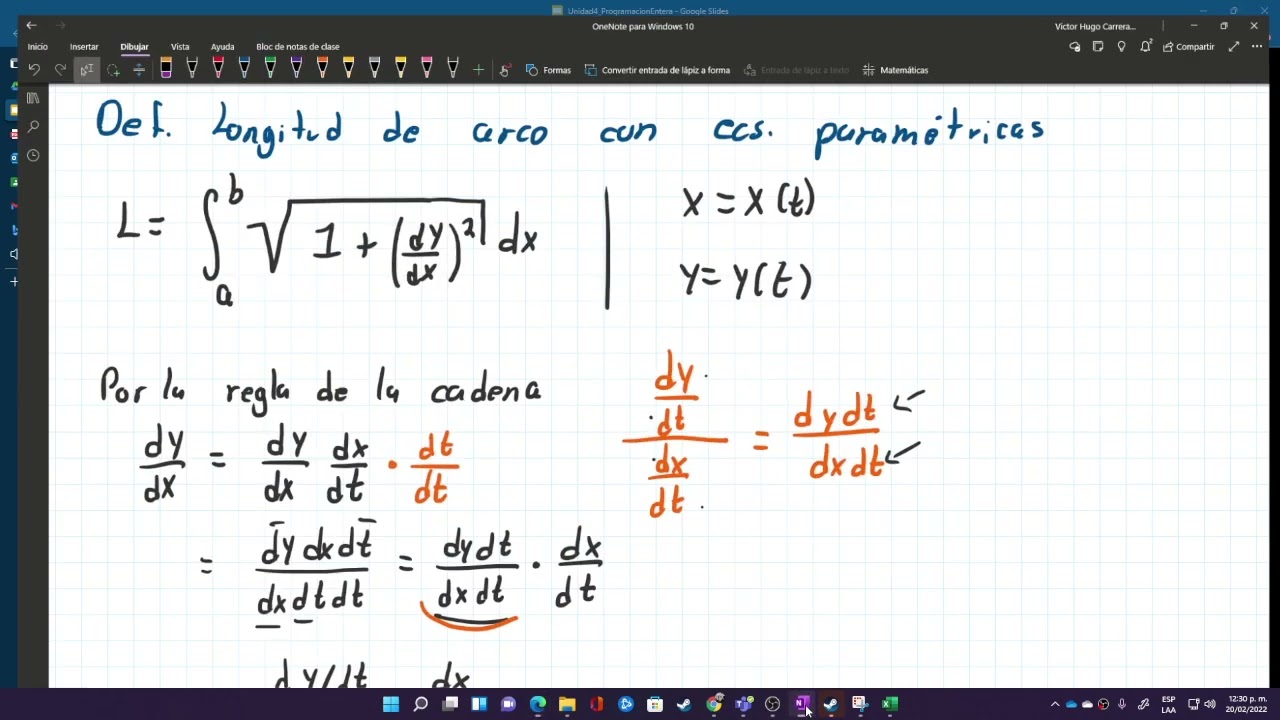 Unidad4_ProgramacionEntera - Google Slides
OneNote para Windows 10
Victor Hugo Carrera...
Inicio Insertar Dibujar Vista Ayuda Bloc de notas de clase
Compartir
Formas Convertir entrada de lápiz a forma Entrada de lápiz a texto Matemáticas
Def. Longitud de arco con ecs. paramétricas
L = ∫_a^b √(1 + (dy/dx)²) dx | x = x(t)
y = y(t)
Por la regla de la cadena
dy/dx = dy/dx dx/dt · dt/dt
(dy/dt)/(dx/dt) = dydt/dxdt
= dydxdt/dxdtdt = dydt/dxdt · dx/dt
dy/dt dx
ESP
LA
12:30 p. m.
20/02/2022